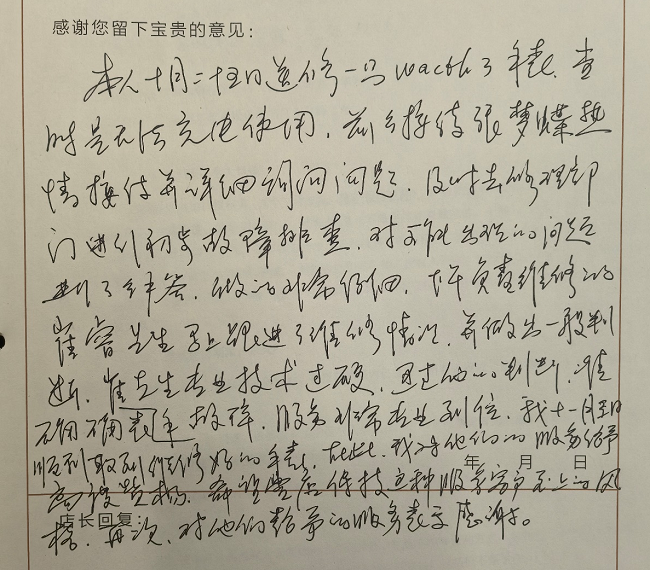 感谢您留下宝贵的意见：
本人十月二十五日送修一只wacth3手表，查
时是无法充电使用，前台接待张梦蝶热
情接待并详细询问问题，及时去修理部
门进行初步故障排查，对可能出现的问题
进行了解答，做的非常仔细，技术负责维修的
崔睿先生马上跟进了维修情况，并做出一般判
断，崔先生专业技术过硬，通过他的判断，准
确确 故障，服务非常专业到位，我十一月五日
顺利取到维修好的手表，在此，我对他们的服务给予
高度赞扬，希望贵店保持这种服务客户至上的风
格，再次，对他们给予的服务表示感谢。
年 月 日
店长回复：